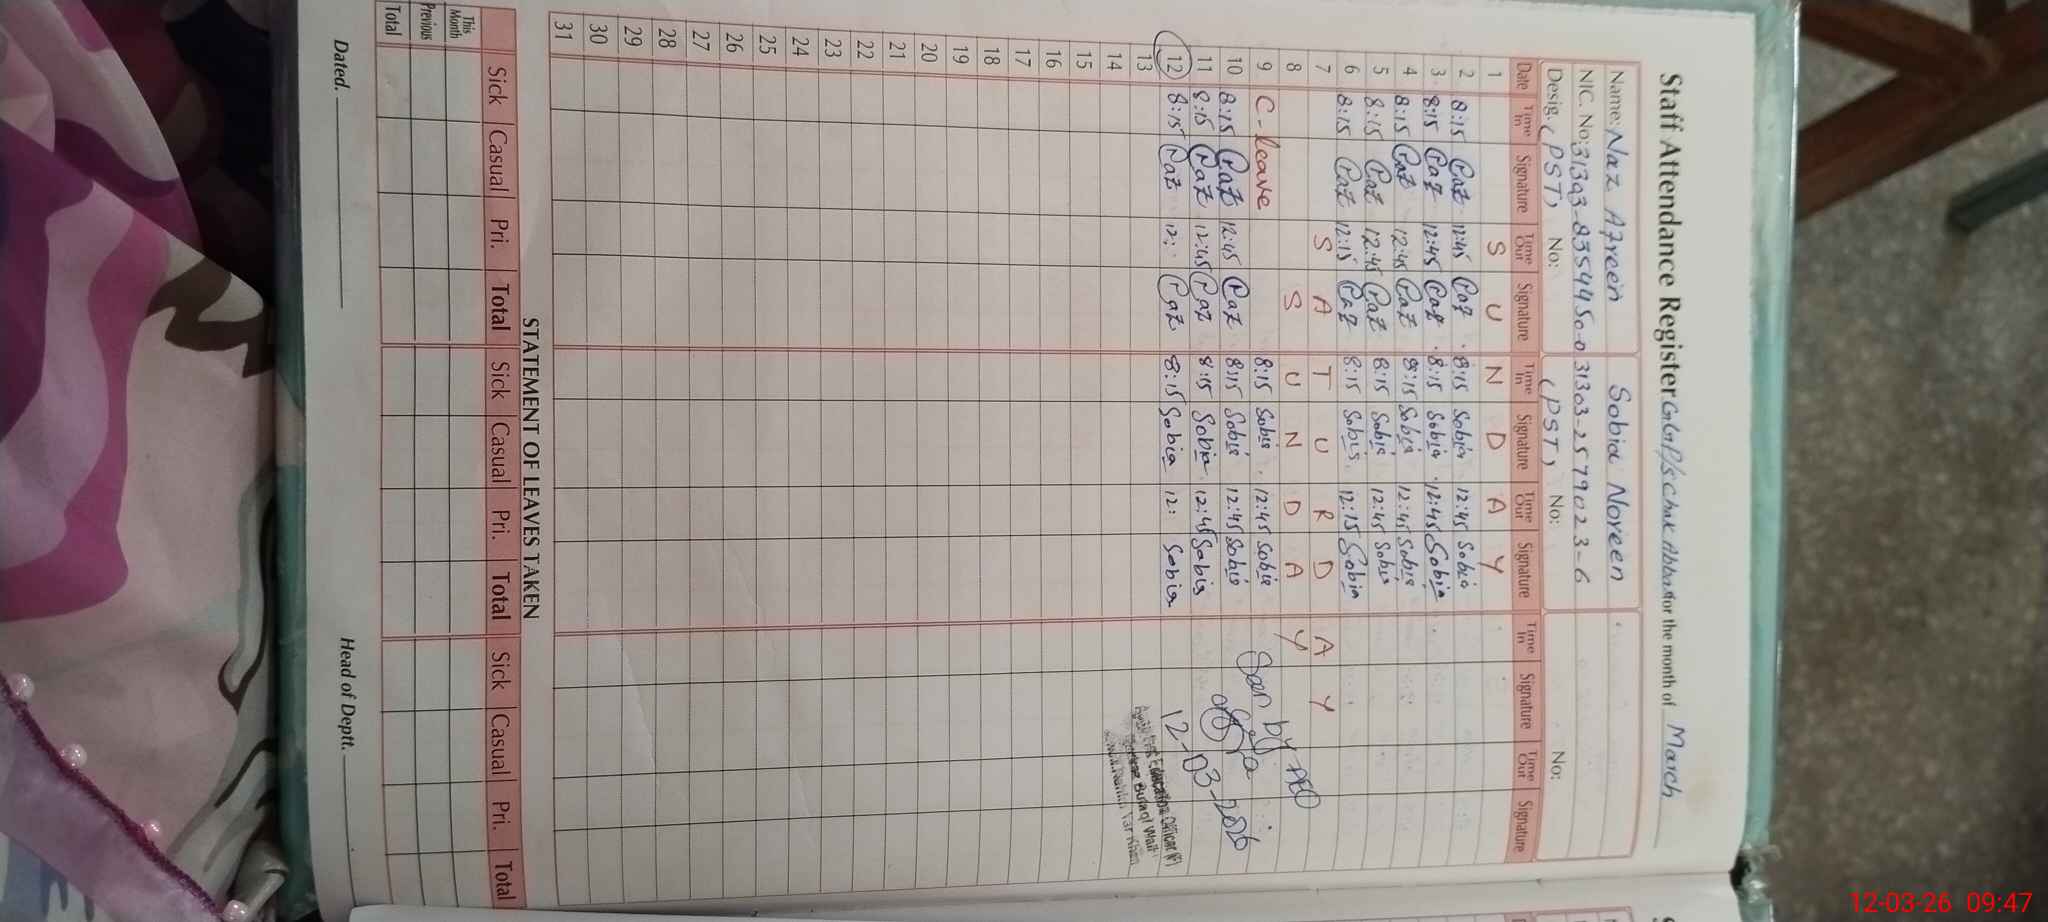 Staff Attendance Register GGP/S Chak Abbas for the month of March
Name: Naz Afreen Sobia Noreen
NIC. No: 31303-2579023-6
Desig. (PST) No: (PST) No: No:
Date Time In Signature Time Out Signature Time In Signature Time Out Signature Time In Signature Time Out Signature
1 S U N D A Y
2 8:15 Naz 12:45 Naz 8:15 Sobia 12:45 Sobia
3 8:15 Naz 12:45 Naz 8:15 Sobia 12:45 Sobia
4 8:15 Naz 12:45 Naz 8:15 Sobia 12:45 Sobia
5 8:15 Naz 12:45 Naz 8:15 Sobia 12:45 Sobia
6 8:15 Naz 12:15 Naz 8:15 Sobia 12:15 Sobia
7 S A T U R D A Y
8 S U N D A Y
9 C-leave 8:15 Sobia 12:45 Sobia
10 8:15 Naz 12:45 Naz 8:15 Sobia 12:45 Sobia
11 8:15 Naz 12:45 Naz 8:15 Sobia 12:45 Sobia
12 8:15 Naz 12: Naz 8:15 Sobia 12: Sobia
Seen by AEO
12-03-2026
Education Officer
13
14
15
16
17
18
19
20
21
22
23
24
25
26
27
28
29
30
31
STATEMENT OF LEAVES TAKEN
Sick Casual Pri. Total Sick Casual Pri. Total Sick Casual Pri. Total
This Month
Previous
Total
Dated. Head of Deptt.
12-03-26 09:47